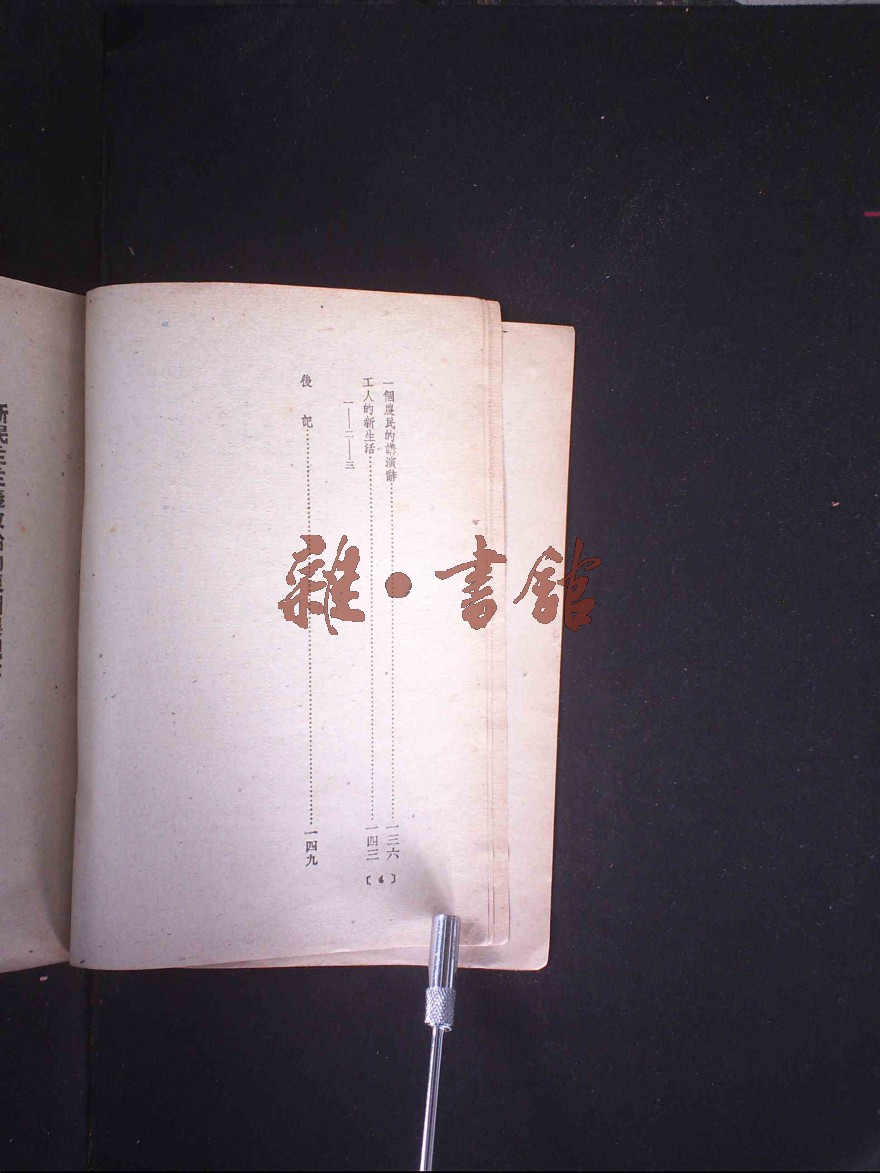 一個農民的講演辭……一三六
工人的新生活……一四三
一——二——三
後記……一四九
〔4〕
雜·書館